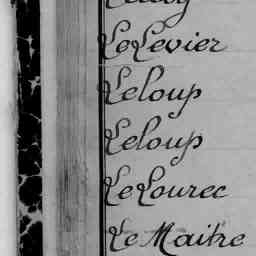 LeLevier
Leloup
Leloup
LeLourec
Le Maitre